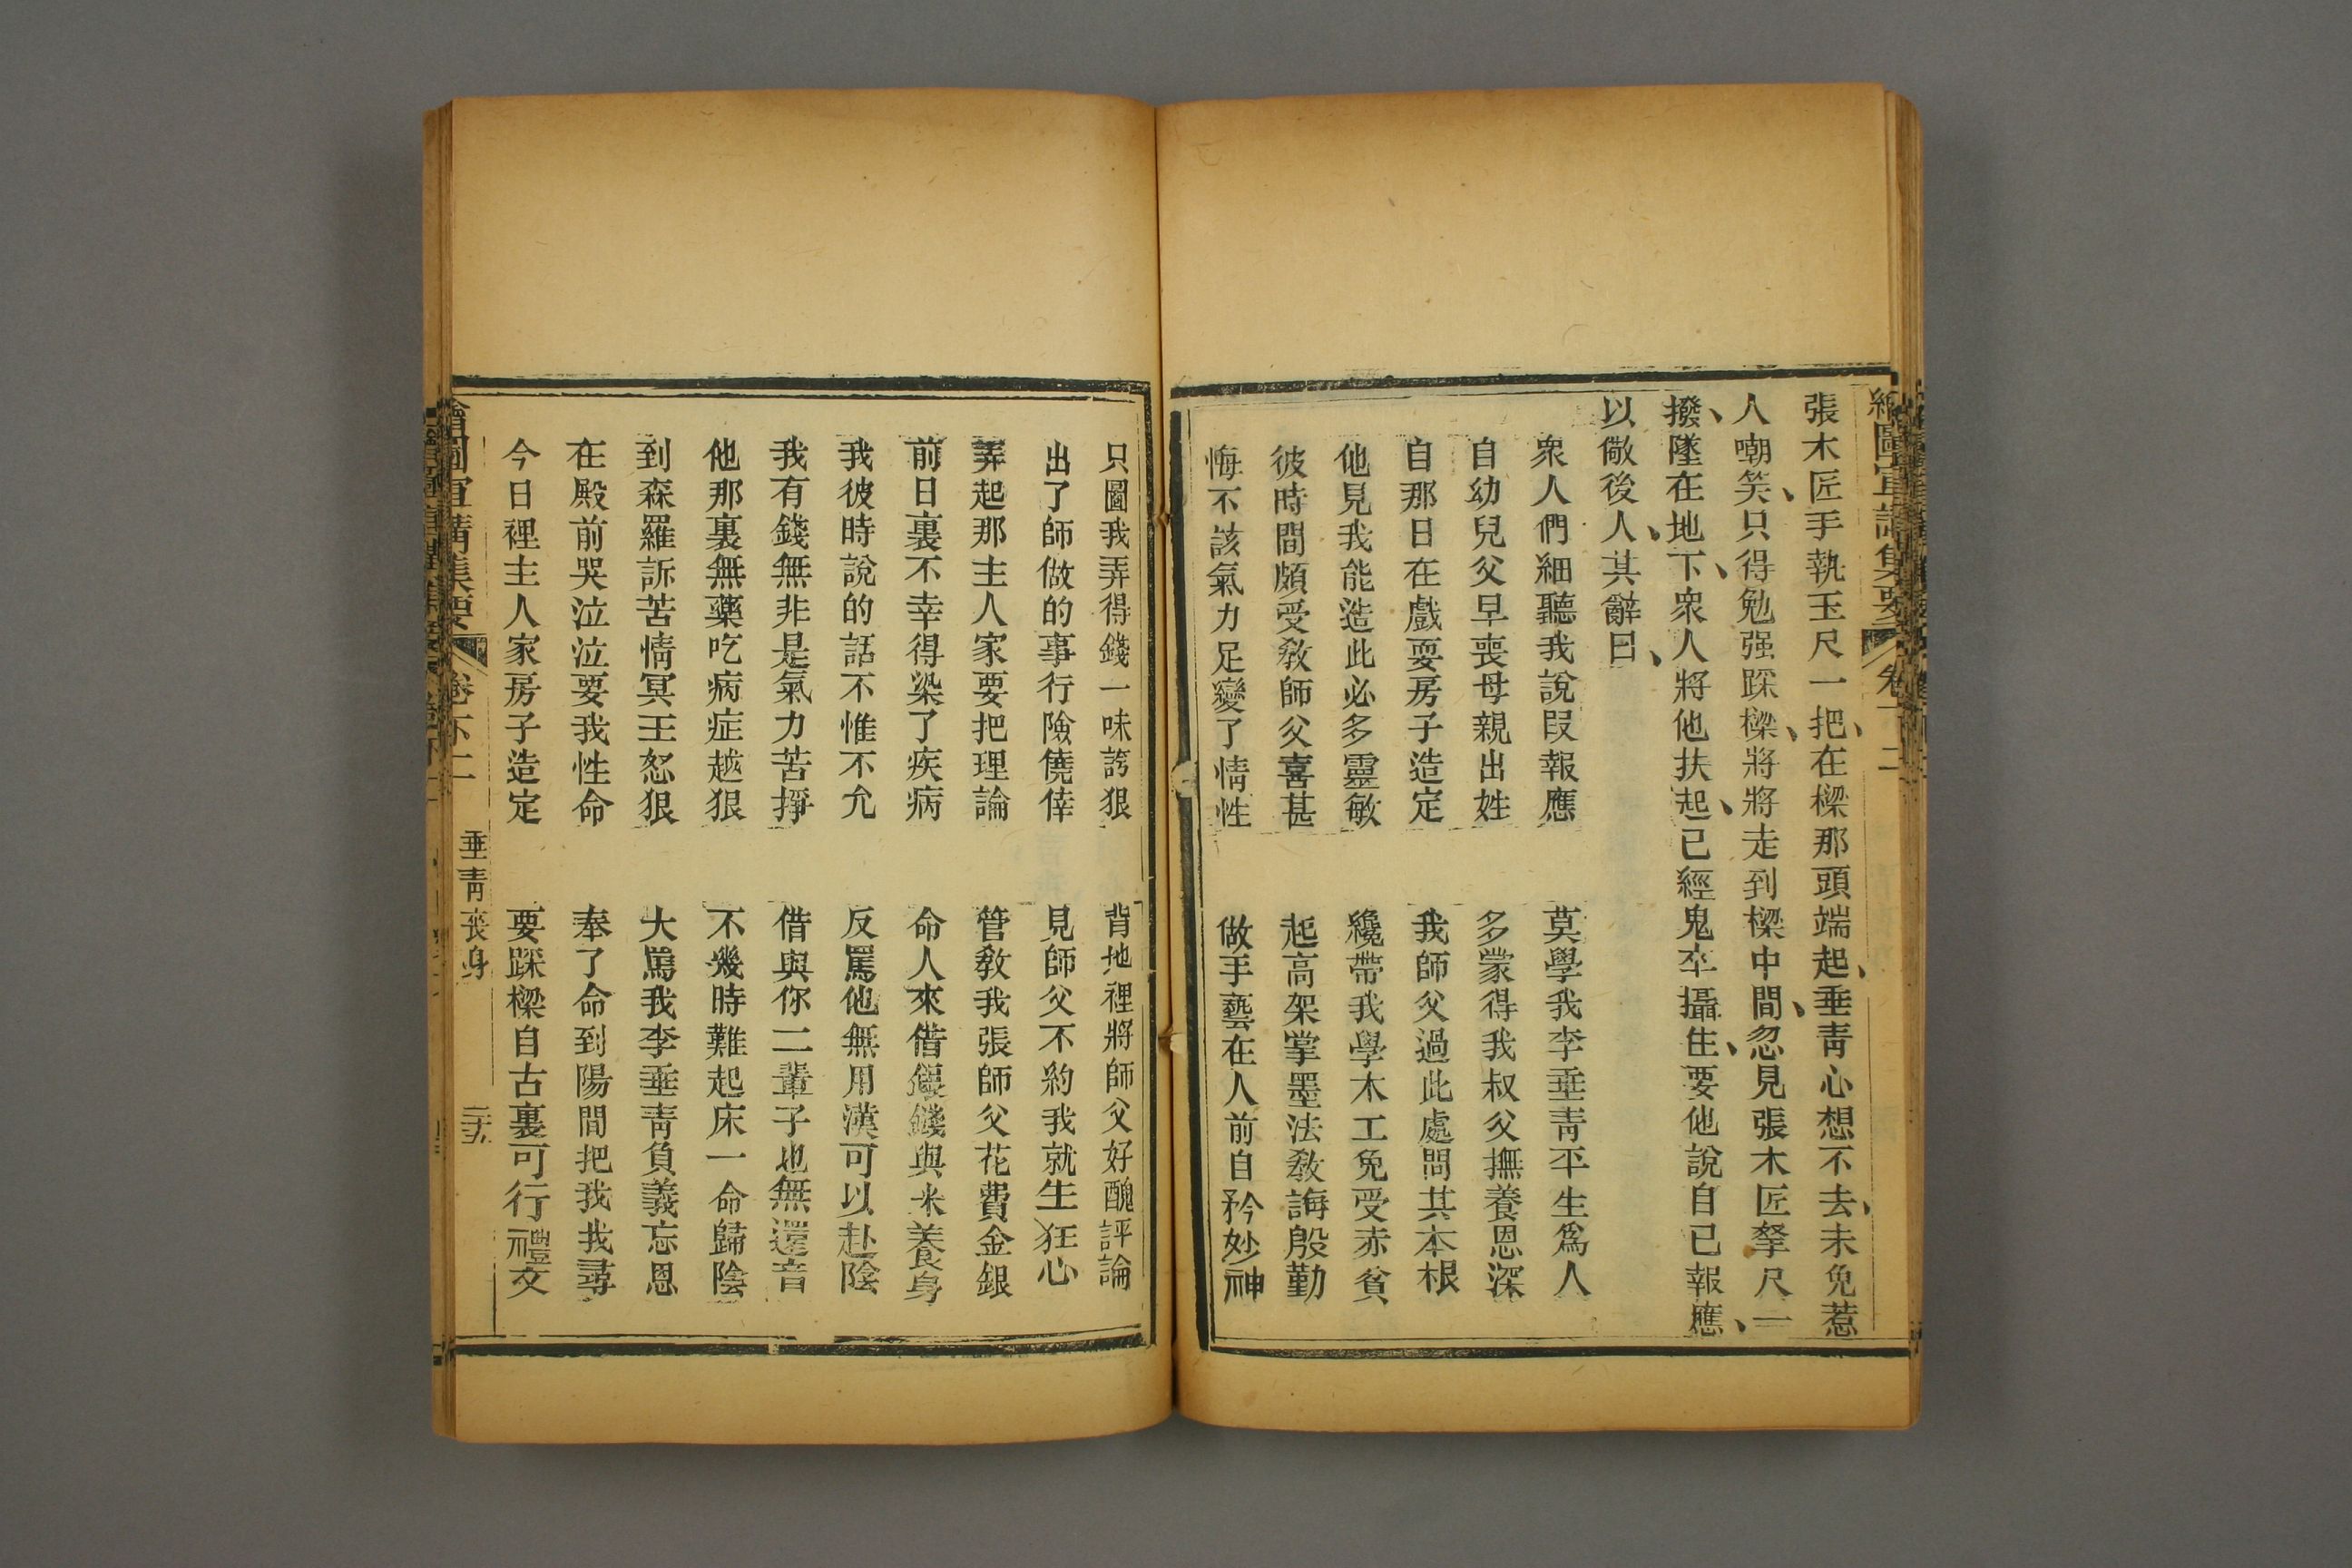 張木匠手執玉尺一把、在樑那頭端起、垂靑心想不去、未免惹
人嘲笑、只得勉强踩樑、將將走到樑中間、忽見張木匠拏尺一
撥、墜在地下、衆人將他扶起、已經鬼卒攝住、要他說自已報應、
以儆後人、其辭曰、
衆人們細聽我說叚報應　莫學我李垂靑平生爲人
自幼兒父早喪母親出姓　多蒙得我叔父撫養恩深
自那日在戲耍房子造定　我師父過此處問其本根
他見我能造此必多靈敏　纔帶我學木工免受赤貧
彼時間頗受敎師父喜甚　起高架掌墨法敎誨殷勤
悔不該氣力足變了情性　做手藝在人前自矜妙神
只圖我弄得錢一味誇狠　背地裡將師父好醜評論
出了師做的事行險僥倖　見師父不約我就生狂心
弄起那主人家要把理論　管敎我張師父花費金銀
前日裏不幸得染了疾病　命人來借銀錢與米養身
我彼時說的話不惟不允　反罵他無用漢可以赴陰
我有錢無非是氣力苦掙　借與你二輩子也無還音
他那裏無藥吃病症越狠　不幾時難起床一命歸陰
到森羅訴苦情冥王怒狠　大罵我李垂靑負義忘恩
在殿前哭泣泣要我性命　奉了命到陽間把我我尋
今日裡主人家房子造定　要踩樑自古裏可行禮文
繪圖宣講集要　卷下二　垂靑喪身